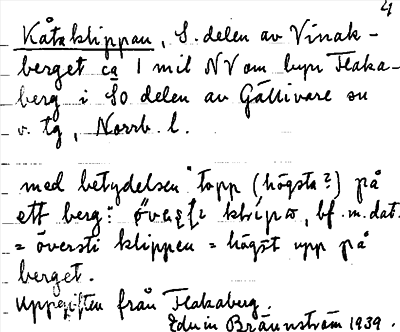 4
Kåtaklippan, S. delen av Vinak-
berget ca 1 mil NV om byn Flaka-
berg i SO delen av Gällivare sn
o. tg, Norrb. l.
med betydelsen "topp (högsta?) på
ett berg": bf. m. dat.
= översti klippen = högst upp på
berget.
Uppgiften från Flakaberg.
Edvin Brännström 1939.